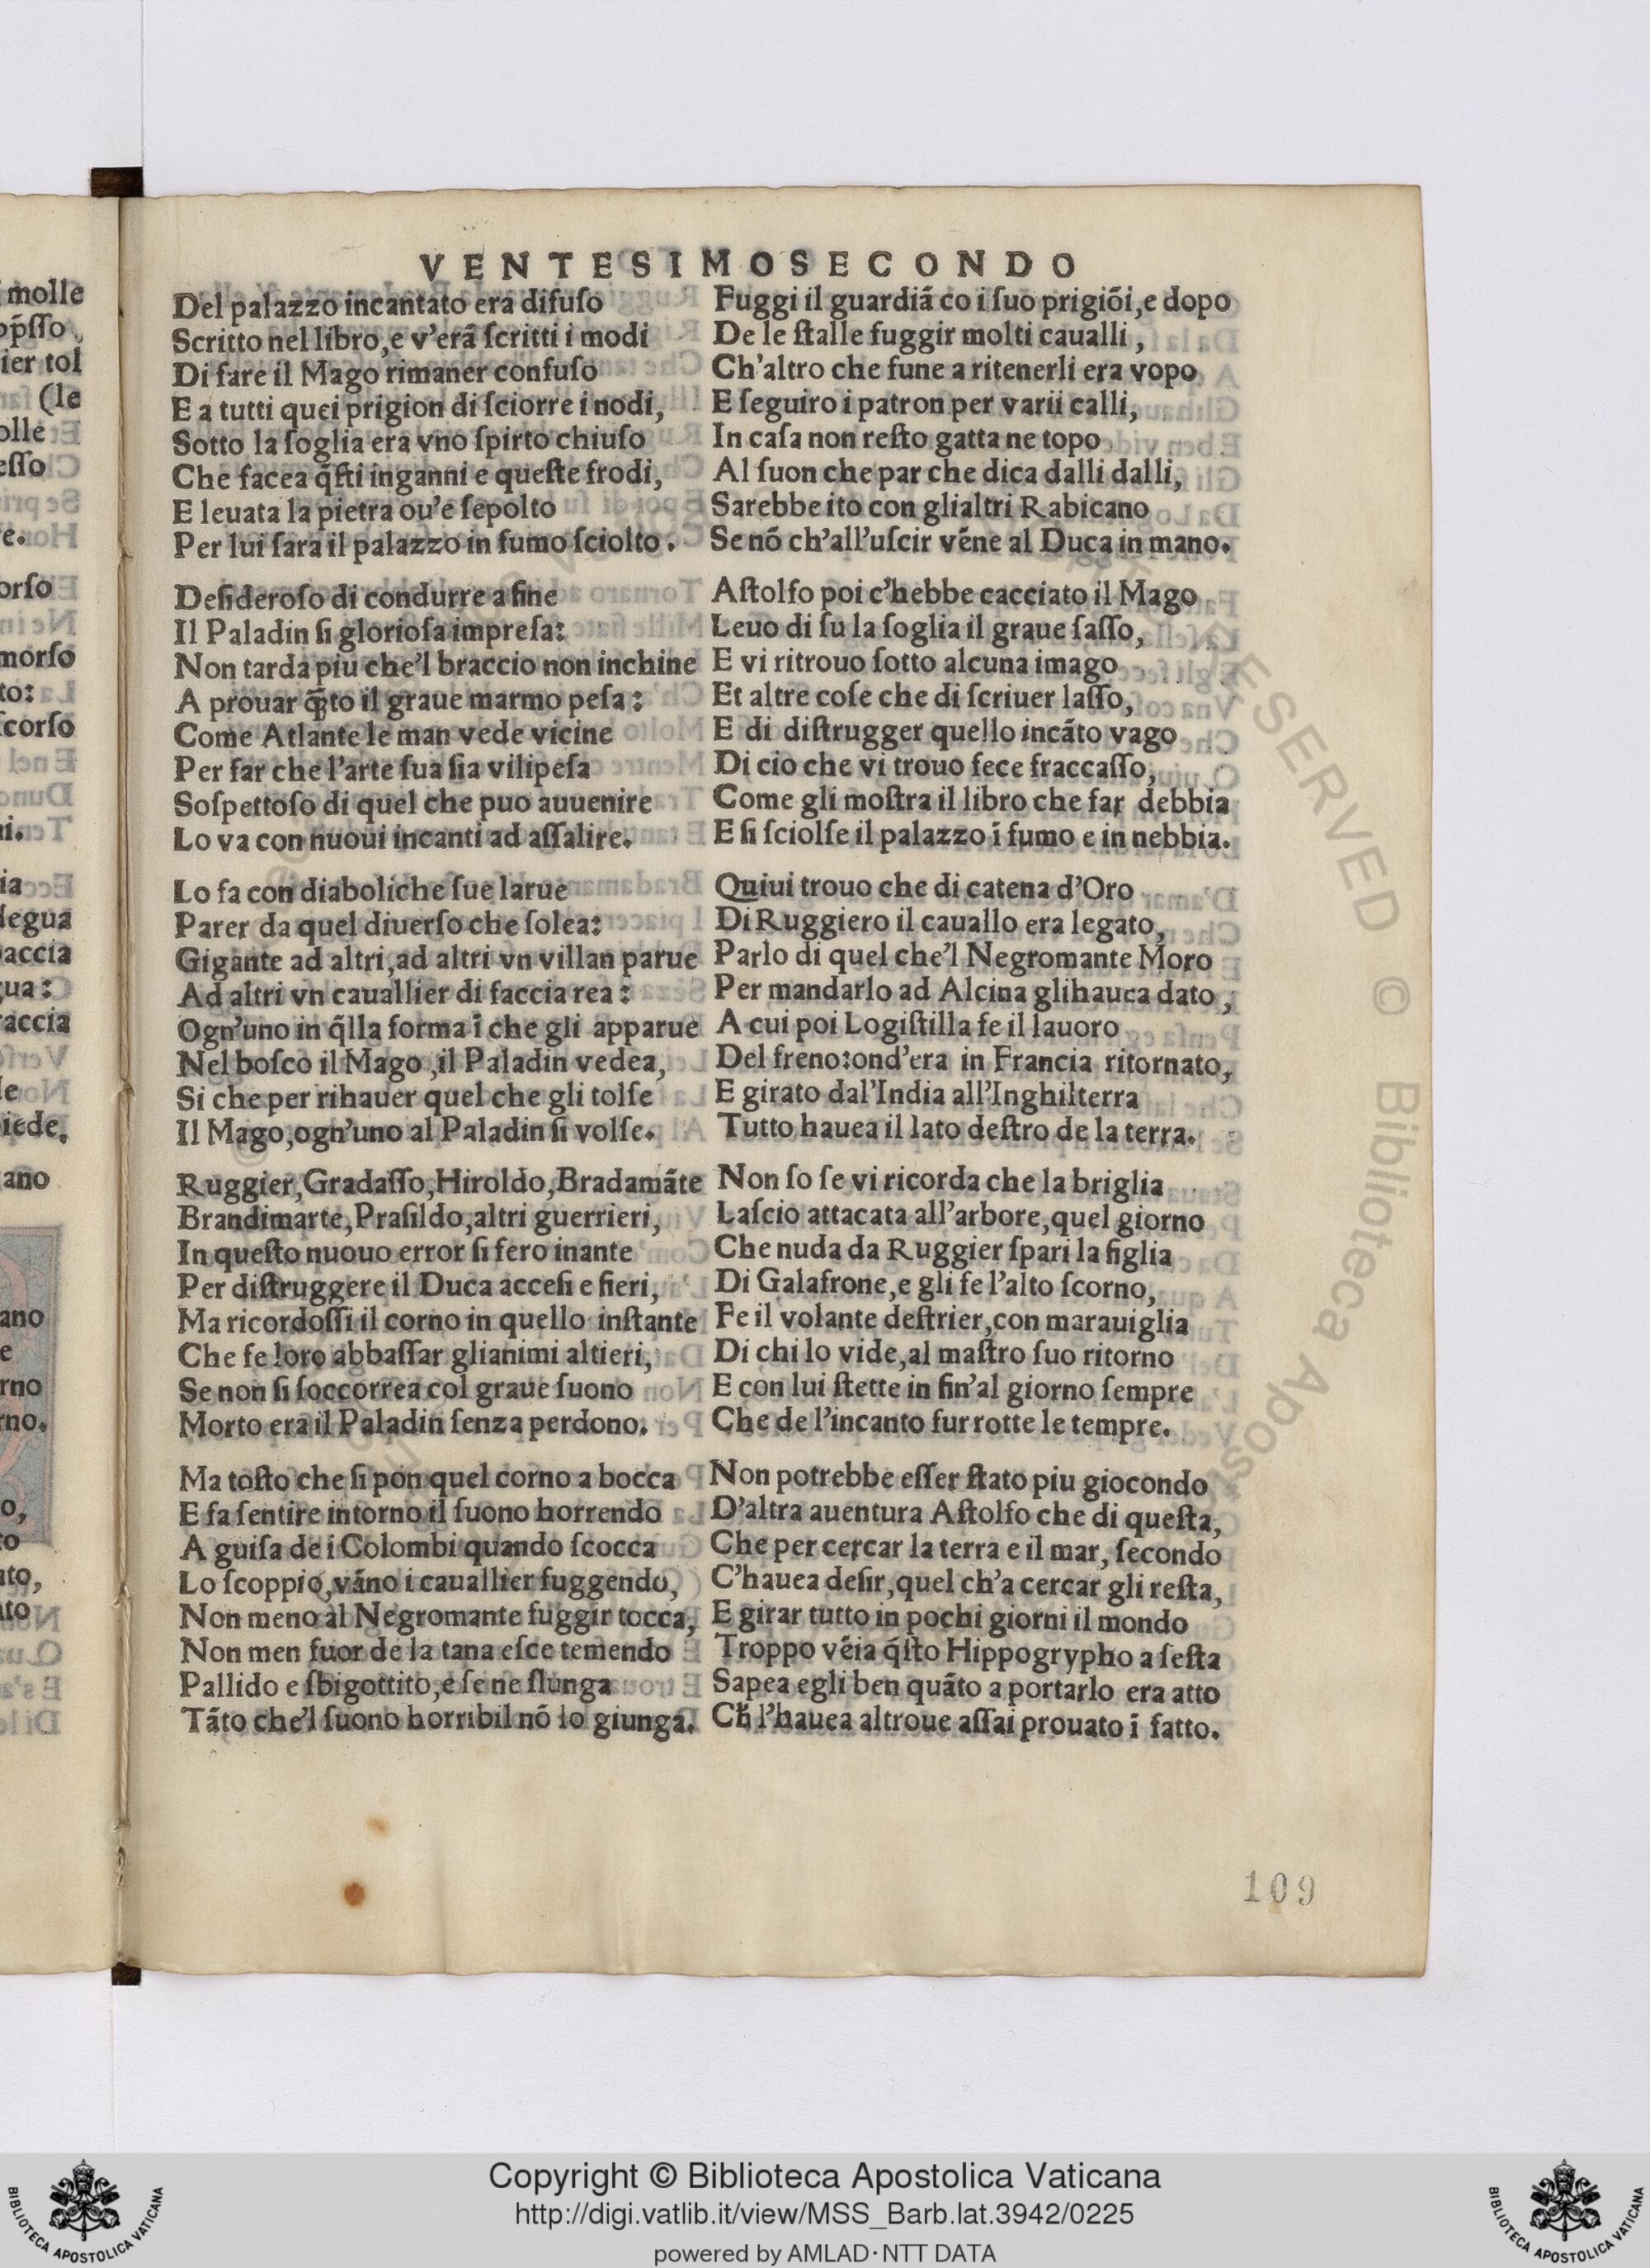 VENTESIMOSECONDO
Del palazzo incantato era difuſo
Scritto nel libro,e v'erã ſcritti i modi
Di fare il Mago rimaner confuſo
E a tutti quei prigion di ſciorre i nodi,
Sotto la ſoglia era vno ſpirto chiuſo
Che facea q̃ſti inganni e queſte frodi,
E leuata la pietra ou'e ſepolto
Per lui ſara il palazzo in fumo ſciolto.
Deſideroſo di condurre a fine
Il Paladin ſi glorioſa impreſa:
Non tarda piu che'l braccio non inchine
A prouar q̃to il graue marmo peſa:
Come Atlante le man vede vicine
Per far che l'arte ſua ſia vilipeſa
Soſpettoſo di quel che puo auuenire
Lo va con nuoui incanti ad aſſalire.
Lo fa con diaboliche ſue larue
Parer da quel diuerſo che ſolea:
Gigante ad altri,ad altri vn villan parue
Ad altri vn cauallier di faccia rea:
Ogn'uno in q̃lla forma ĩ che gli apparue
Nel boſco il Mago,il Paladin vedea,
Si che per rihauer quel che gli tolſe
Il Mago,ogn'uno al Paladin ſi volſe.
Ruggier,Gradaſſo,Hiroldo,Bradamãte
Brandimarte,Praſildo,altri guerrieri,
In queſto nuouo error ſi fero inante
Per diſtruggere il Duca acceſi e fieri,
Ma ricordoſſi il corno in quello inſtante
Che fe loro abbaſſar glianimi altieri,
Se non ſi ſoccorrea col graue ſuono
Morto era il Paladin ſenza perdono.
Ma toſto che ſi pon quel corno a bocca
E fa ſentire intorno il ſuono horrendo
A guiſa de i Colombi quando ſcocca
Lo ſcoppio,vãno i cauallier fuggendo,
Non meno al Negromante fuggir tocca,
Non men fuor de la tana eſce temendo
Pallido e ſbigottito,e ſe ne ſlunga
Tãto che'l ſuono horribil nõ lo giunga.
Fuggi il guardiã co i ſuo prigiõi,e dopo
De le ſtalle fuggir molti caualli,
Ch'altro che fune a ritenerli era vopo
E ſeguiro i patron per varii calli,
In caſa non reſto gatta ne topo
Al ſuon che par che dica dalli dalli,
Sarebbe ito con glialtri Rabicano
Se nõ ch'all'uſcir vẽne al Duca in mano.
Aſtolfo poi c'hebbe cacciato il Mago
Leuo di ſu la ſoglia il graue ſaſſo,
E vi ritrouo ſotto alcuna imago
Et altre coſe che di ſcriuer laſſo,
E di diſtrugger quello incãto vago
Di cio che vi trouo fece fraccaſſo,
Come gli moſtra il libro che far debbia
E ſi ſciolſe il palazzo ĩ fumo e in nebbia.
Quiui trouo che di catena d'Oro
Di Ruggiero il cauallo era legato,
Parlo di quel che'l Negromante Moro
Per mandarlo ad Alcina glihauea dato,
A cui poi Logiſtilla fe il lauoro
Del freno:ond'era in Francia ritornato,
E girato dal'India all'Inghilterra
Tutto hauea il lato deſtro de la terra.
Non ſo ſe vi ricorda che la briglia
Laſcio attacata all'arbore,quel giorno
Che nuda da Ruggier ſpari la figlia
Di Galafrone,e gli fe l'alto ſcorno,
Fe il volante deſtrier,con marauiglia
Di chi lo vide,al maſtro ſuo ritorno
E con lui ſtette in fin'al giorno ſempre
Che de l'incanto fur rotte le tempre.
Non potrebbe eſſer ſtato piu giocondo
D'altra auentura Aſtolfo che di queſta,
Che per cercar la terra e il mar, ſecondo
C'hauea deſir,quel ch'a cercar gli reſta,
E girar tutto in pochi giorni il mondo
Troppo vẽia q̃ſto Hippogrypho a ſeſta
Sapea egli ben quãto a portarlo era atto
Ch̃ l'hauea altroue aſſai prouato ĩ fatto.
109
Copyright © Biblioteca Apostolica Vaticana
http://digi.vatlib.it/view/MSS_Barb.lat.3942/0225
powered by AMLAD·NTT DATA
BIBLIOTECA APOSTOLICA VATICANA
BIBLIOTECA APOSTOLICA VATICANA